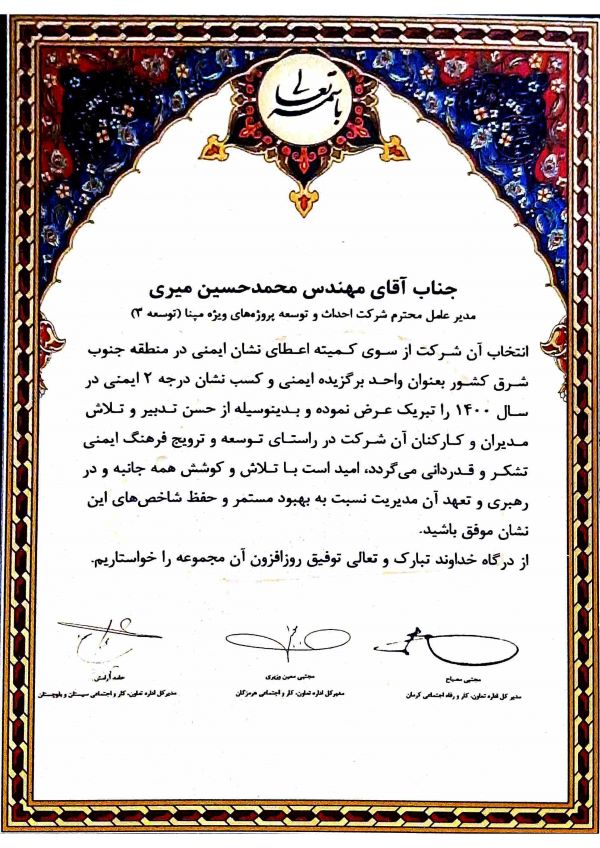 باسمه تعالی
جناب آقای مهندس محمدحسین میری
مدیر عامل محترم شرکت احداث و توسعه پروژه‌های ویژه مپنا (توسعه ۳)
انتخاب آن شرکت از سوی کمیته اعطای نشان ایمنی در منطقه جنوب
شرق کشور بعنوان واحد برگزیده ایمنی و کسب نشان درجه ۲ ایمنی در
سال ۱۴۰۰ را تبریک عرض نموده و بدینوسیله از حسن تدبیر و تلاش
مدیران و کارکنان آن شرکت در راستای توسعه و ترویج فرهنگ ایمنی
تشکر و قدردانی می‌گردد، امید است با تلاش و کوشش همه جانبه و در
رهبری و تعهد آن مدیریت نسبت به بهبود مستمر و حفظ شاخص‌های این
نشان موفق باشید.
از درگاه خداوند تبارک و تعالی توفیق روزافزون آن مجموعه را خواستاریم.
مجتبی مصباح
مدیر کل اداره تعاون، کار و رفاه اجتماعی کرمان
مجتبی معین وزیری
مدیرکل اداره تعاون، کار و اجتماعی هرمزگان
حامد آرامش
مدیرکل اداره تعاون، کار و اجتماعی سیستان و بلوچستان